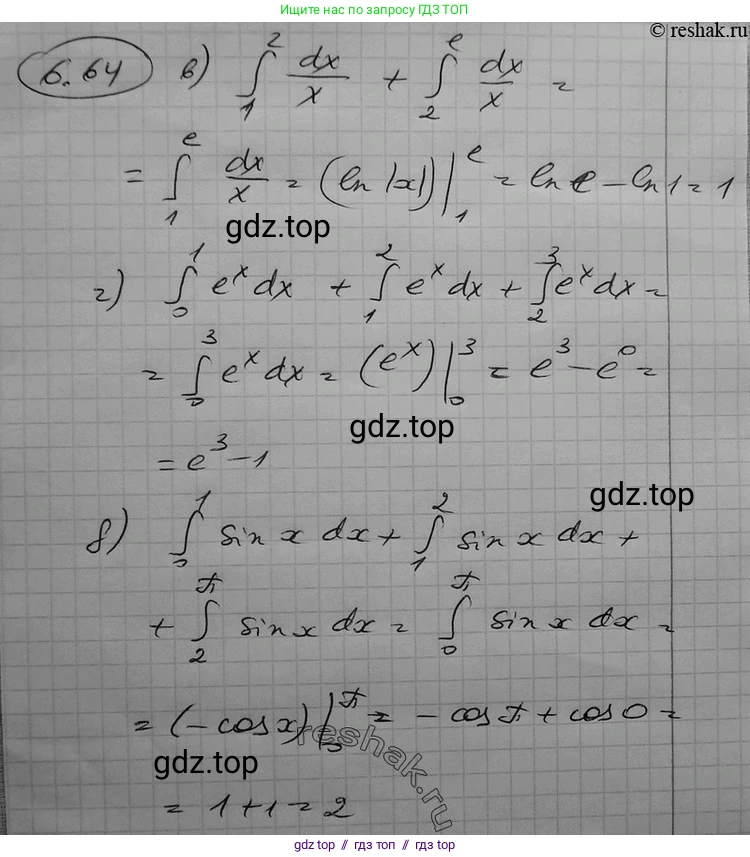 Ищите нас по запросу ГДЗ ТОП
© reshak.ru
6.64 в) ∫₁² dx/x + ∫₂ᵉ dx/x =
= ∫₁ᵉ dx/x = (ln|x|)|₁ᵉ = ln e - ln 1 = 1
gdz.top
г) ∫₀¹ eˣdx + ∫₁² eˣdx + ∫₂³ eˣdx =
= ∫₀³ eˣdx = (eˣ)|₀³ = e³ - e⁰ =
gdz.top
= e³ - 1
gdz.top
д) ∫₀¹ sin x dx + ∫₁² sin x dx +
+ ∫₂^π sin x dx = ∫₀^π sin x dx =
= (-cos x)|₀^π = - cos π + cos 0 =
reshak.ru
gdz.top
= 1 + 1 = 2
gdz.top // гдз.топ // гдз.top